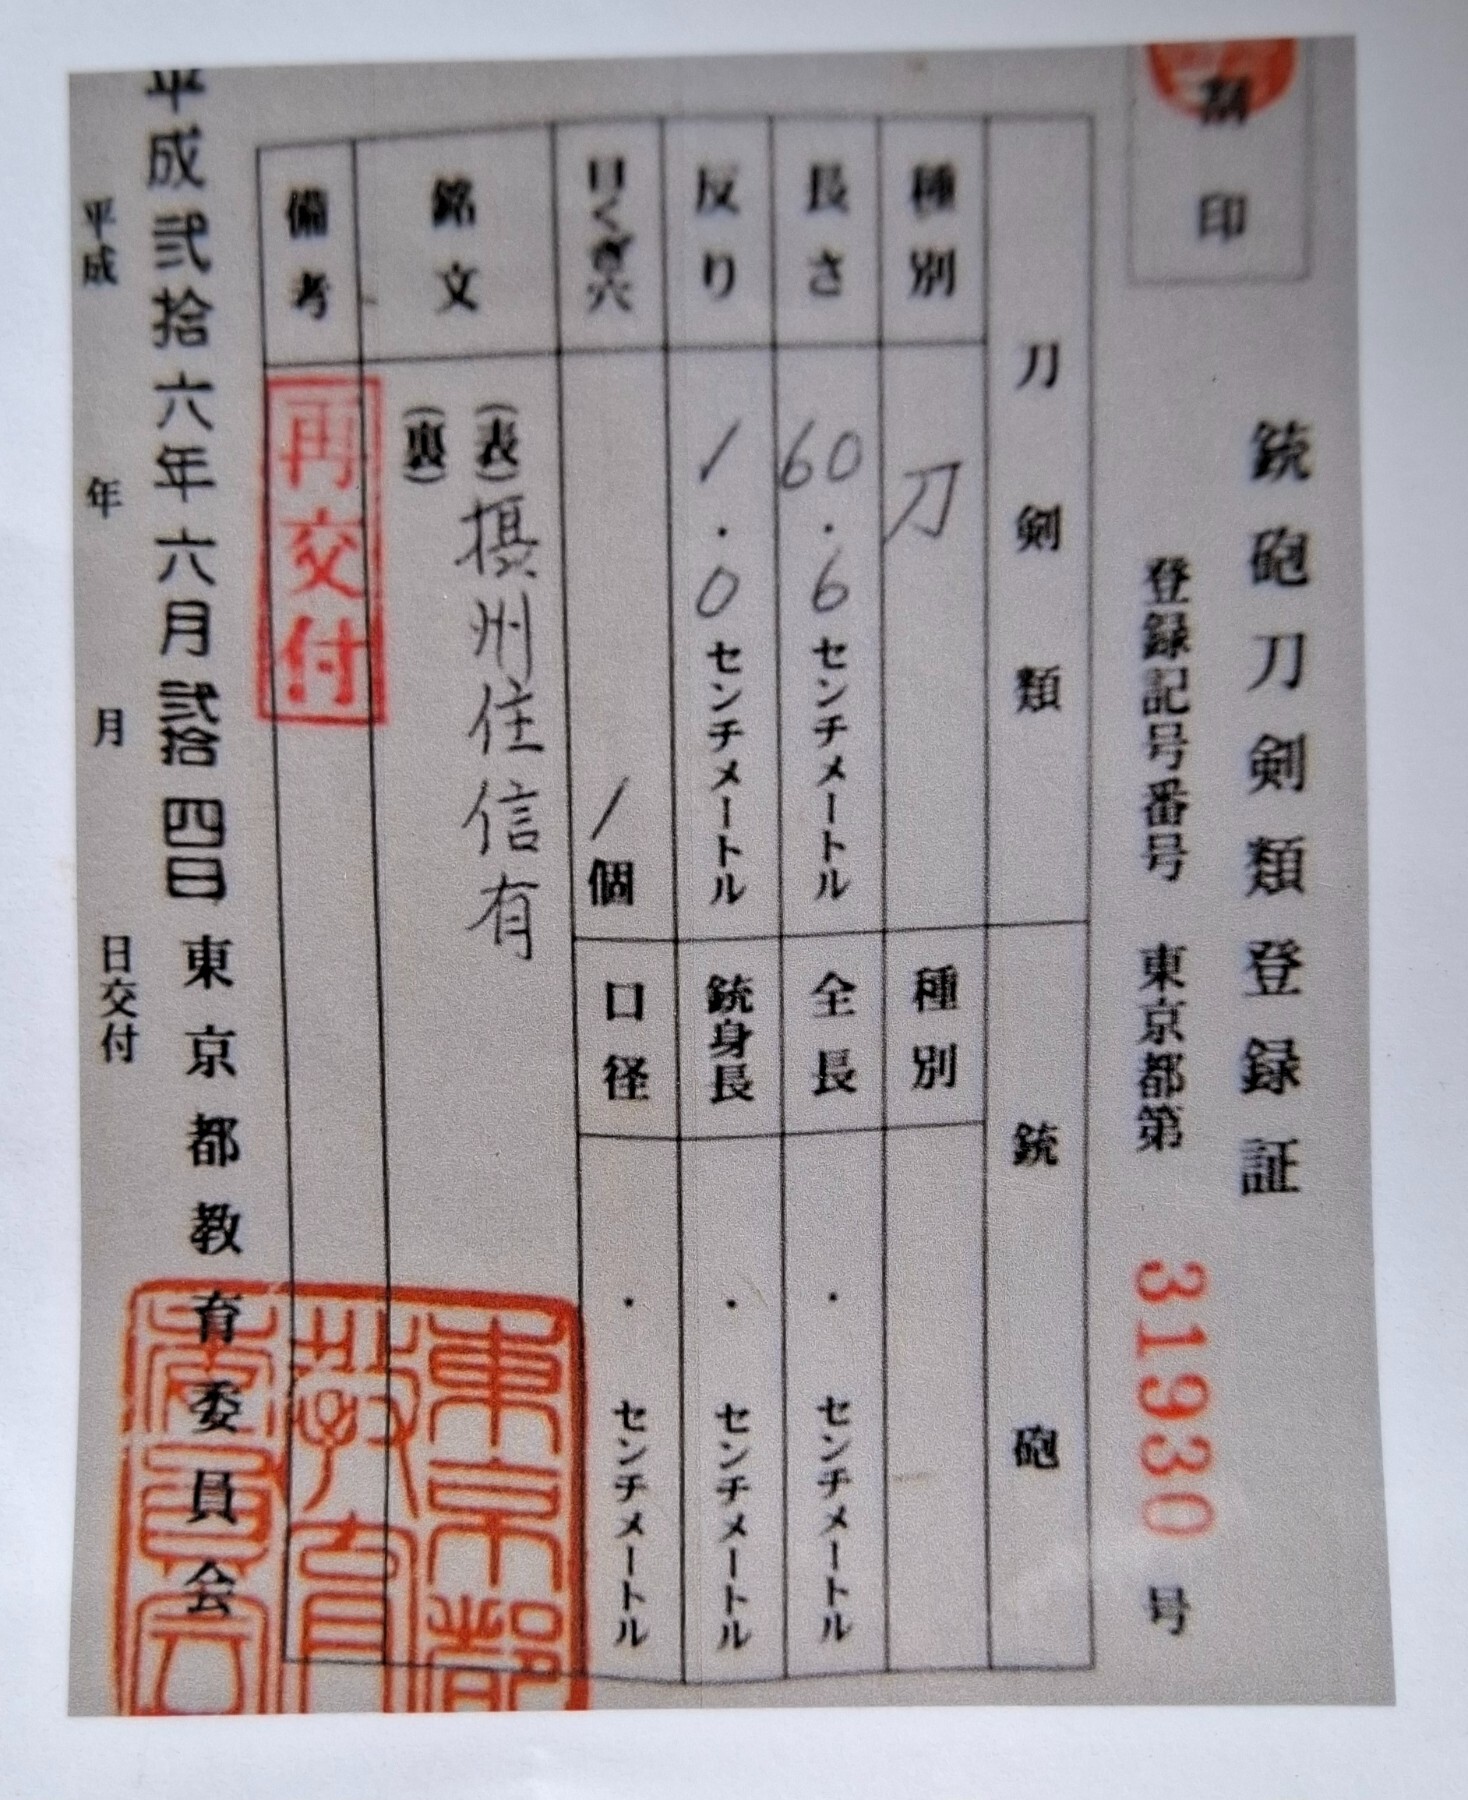 割印
銃砲刀剣類登録証
登録記号番号 東京都第 31930 号
刀剣類
銃砲
種別 刀
種別
長さ 60.6センチメートル
全長 ・ センチメートル
反り 1.0センチメートル
銃身長 ・ センチメートル
目くぎ穴 1個
口径 ・ センチメートル
銘文 (表)摂州住信有
(裏)
備考 再交付
平成弐拾六年六月弐拾四日 東京都教育委員会
平成 年 月 日交付
東京都
教育
委員会